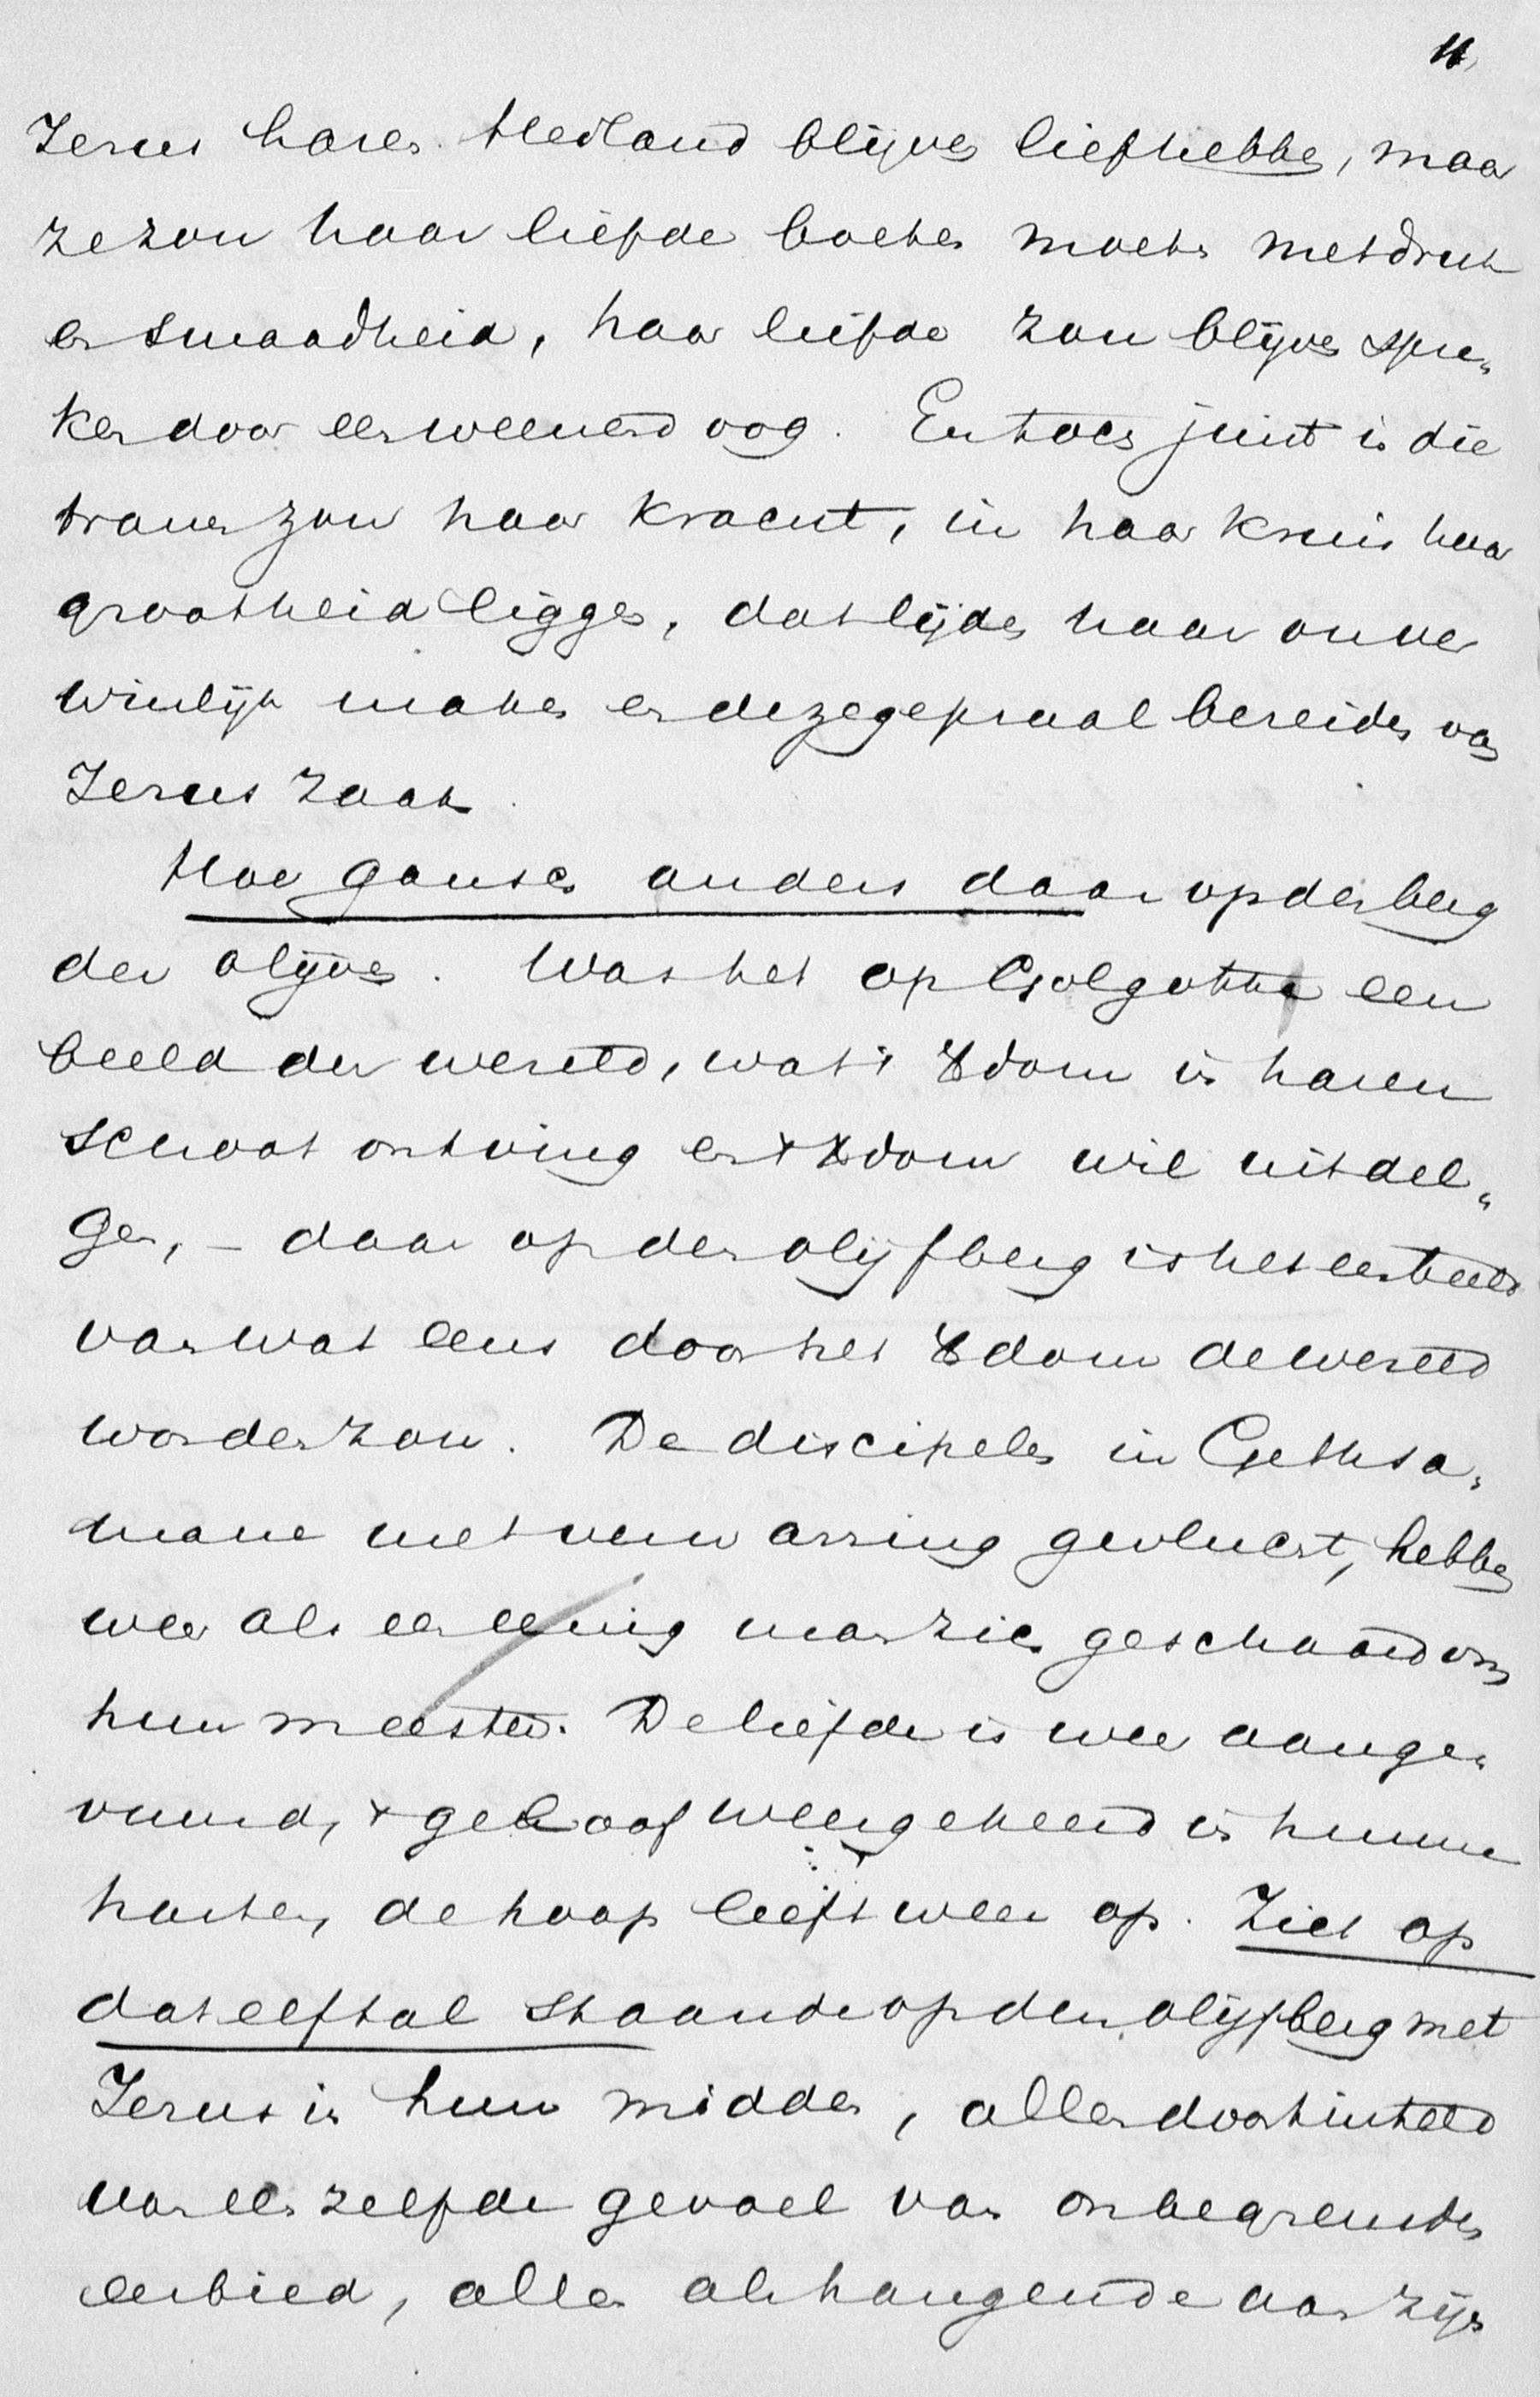 11.
Jezus haren Heiland blijven liefhebben, maar
ze zou haar liefde boeten moeten met druk
en smaadheid, haar liefde zou blijven spre„
ken door een weenend oog. En toch juist in die
tranen zou haar kracht, in haar kruis haar
grootheid liggen, dat lijden haar onver
winlijk maken en de zegepraal bereiden van
Jezus zaak.
Hoe gansch anders daar op den berg
der olijven. Was het op Golgotha een
beeld der wereld, wat 't Xdom in haren
schoot ontving en 't Xdom wil uitdel„
gen, – daar op den olijfberg is het een beeld
van wat eens door het Xdom de wereld
worden zou. De discipelen in Gethsa„
mane met verwarring gevlucht, hebben
weer als een eenig man zich geschaard om
hun meester. De liefde is weer aange„
vuurd, 't geloof weergekeerd in hunne
harten, de hoop leeft weer op. Ziet op
dat elftal staande op den olijfberg met
Jezus in hun midden, allen doortinteld
van een zelfde gevoel van onbegrensden
eerbied, allen als hangende aan zijn